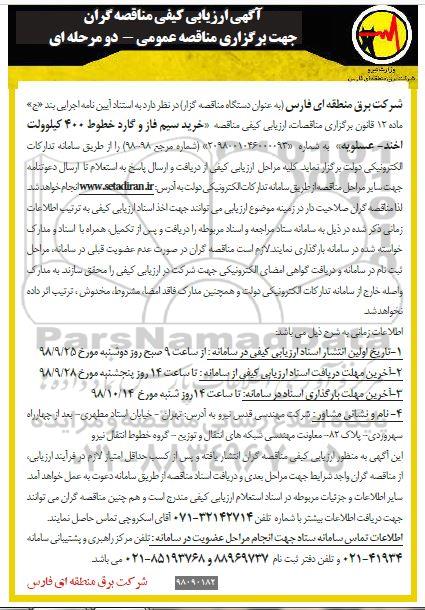 آگهی ارزیابی کیفی مناقصه گران
جهت برگزاری مناقصه عمومی – دو مرحله ای
وزارت نیرو
شرکت برق منطقه ای فارس
شرکت برق منطقه ای فارس (به عنوان دستگاه مناقصه گزار) در نظر دارد به استناد آیین نامه اجرایی بند «ج»
ماده ۱۲ قانون برگزاری مناقصات، ارزیابی کیفی مناقصه «خرید سیم فاز و گارد خطوط ۴۰۰ کیلوولت
اخند- عسلویه» به شماره «۲۰۹۸۰۰۱۰۴۶۰۰۰۰۹۳» (شماره مرجع ۹۸-۹۸) را از طریق سامانه تدارکات
الکترونیکی دولت برگزار نماید. کلیه مراحل ارزیابی کیفی از دریافت و ارسال پاسخ به استعلام تا ارسال دعوتنامه
جهت سایر مراحل مناقصه از طریق سامانه تدارکات الکترونیکی دولت به آدرس: www.setadiran.ir انجام خواهد شد.
لذا مناقصه گران صلاحیت دار در زمینه موضوع ارزیابی می توانند جهت اخذ اسناد ارزیابی کیفی به ترتیب اطلاعات
زمانی ذکر شده در ذیل به سامانه ستاد مراجعه و اسناد مربوطه را دریافت و پس از تکمیل، همراه با اسناد و مدارک
خواسته شده در سامانه بارگذاری نمایند. لازم است مناقصه گران در صورت عدم عضویت قبلی در سامانه، مراحل
ثبت نام در سامانه و دریافت گواهی امضای الکترونیکی جهت شرکت در ارزیابی کیفی را محقق سازند به مدارک
واصله خارج از سامانه تدارکات الکترونیکی دولت و همچنین مدارک فاقد امضا، مشروط، مخدوش ، ترتیب اثر داده
نخواهد شد.
اطلاعات زمانی به شرح ذیل می باشد:
۱-تاریخ اولین انتشار اسناد ارزیابی کیفی در سامانه : از ساعت ۹ صبح روز دوشنبه مورخ ۹۸/۹/۲۵
۲-آخرین مهلت دریافت اسناد ارزیابی کیفی از سامانه : تا ساعت ۱۴ روز پنجشنبه مورخ ۹۸/۹/۲۸
۳-آخرین مهلت بارگذاری اسناد در سامانه: تا ساعت ۱۴ روز شنبه مورخ ۹۸/۱۰/۱۴
۴- نام و نشانی مشاور : شرکت مهندسی قدس نیرو به آدرس: تهران - خیابان استاد مطهری- بعد از چهارراه
سهروردی- پلاک ۸۲- معاونت مهندسی شبکه های انتقال و توزیع - گروه خطوط انتقال نیرو
این آگهی به منظور ارزیابی کیفی مناقصه گران انتشار یافته و پس از کسب حداقل امتیاز لازم در فرآیند ارزیابی،
از مناقصه گران واجد شرایط جهت مراحل بعدی و دریافت اسناد مناقصه از طریق سامانه دعوت به عمل خواهد آمد.
سایر اطلاعات و جزئیات مربوطه در اسناد استعلام ارزیابی کیفی مندرج است و هم چنین مناقصه گران می توانند
جهت دریافت اطلاعات بیشتر با شماره تلفن ۳۲۱۴۲۷۱۴-۰۷۱ آقای اسکروچی تماس حاصل نمایند.
اطلاعات تماس سامانه ستاد جهت انجام مراحل عضویت در سامانه : تلفن مرکز راهبری و پشتیبانی سامانه
۴۱۹۳۴-۰۲۱ و تلفن دفتر ثبت نام ۸۸۹۶۹۷۳۷ و ۸۵۱۹۳۷۶۸-۰۲۱ می باشد.
۹۸۰۹۰۱۸۲
شرکت برق منطقه ای فارس